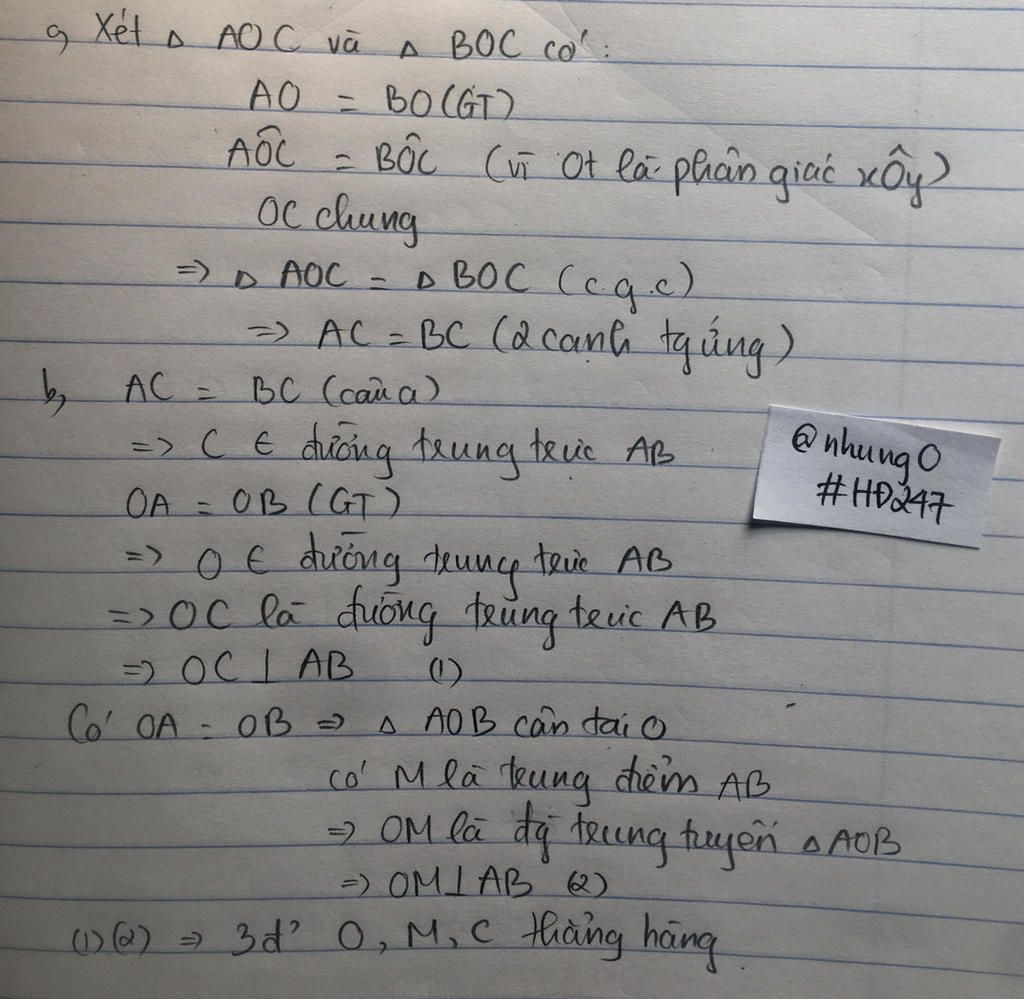 a, Xét △ AOC và △ BOC có:
AO = BO (GT)
AÔC = BÔC (vì Ot là phân giác xÔy)
OC chung
=> △ AOC = △ BOC (c.g.c)
=> AC = BC (2 cạnh tg ứng)
b, AC = BC (câu a)
=> C ∈ đường trung trực AB
OA = OB (GT)
=> O ∈ đường trung trực AB
=> OC là đường trung trực AB
=> OC ⊥ AB (1)
Có OA = OB => △ AOB cân tại O
có M là trung điểm AB
=> OM là đg trung tuyến △ AOB
=> OM ⊥ AB (2)
(1)(2) => 3đ' O, M, C thẳng hàng
@nhung0
#HĐ247